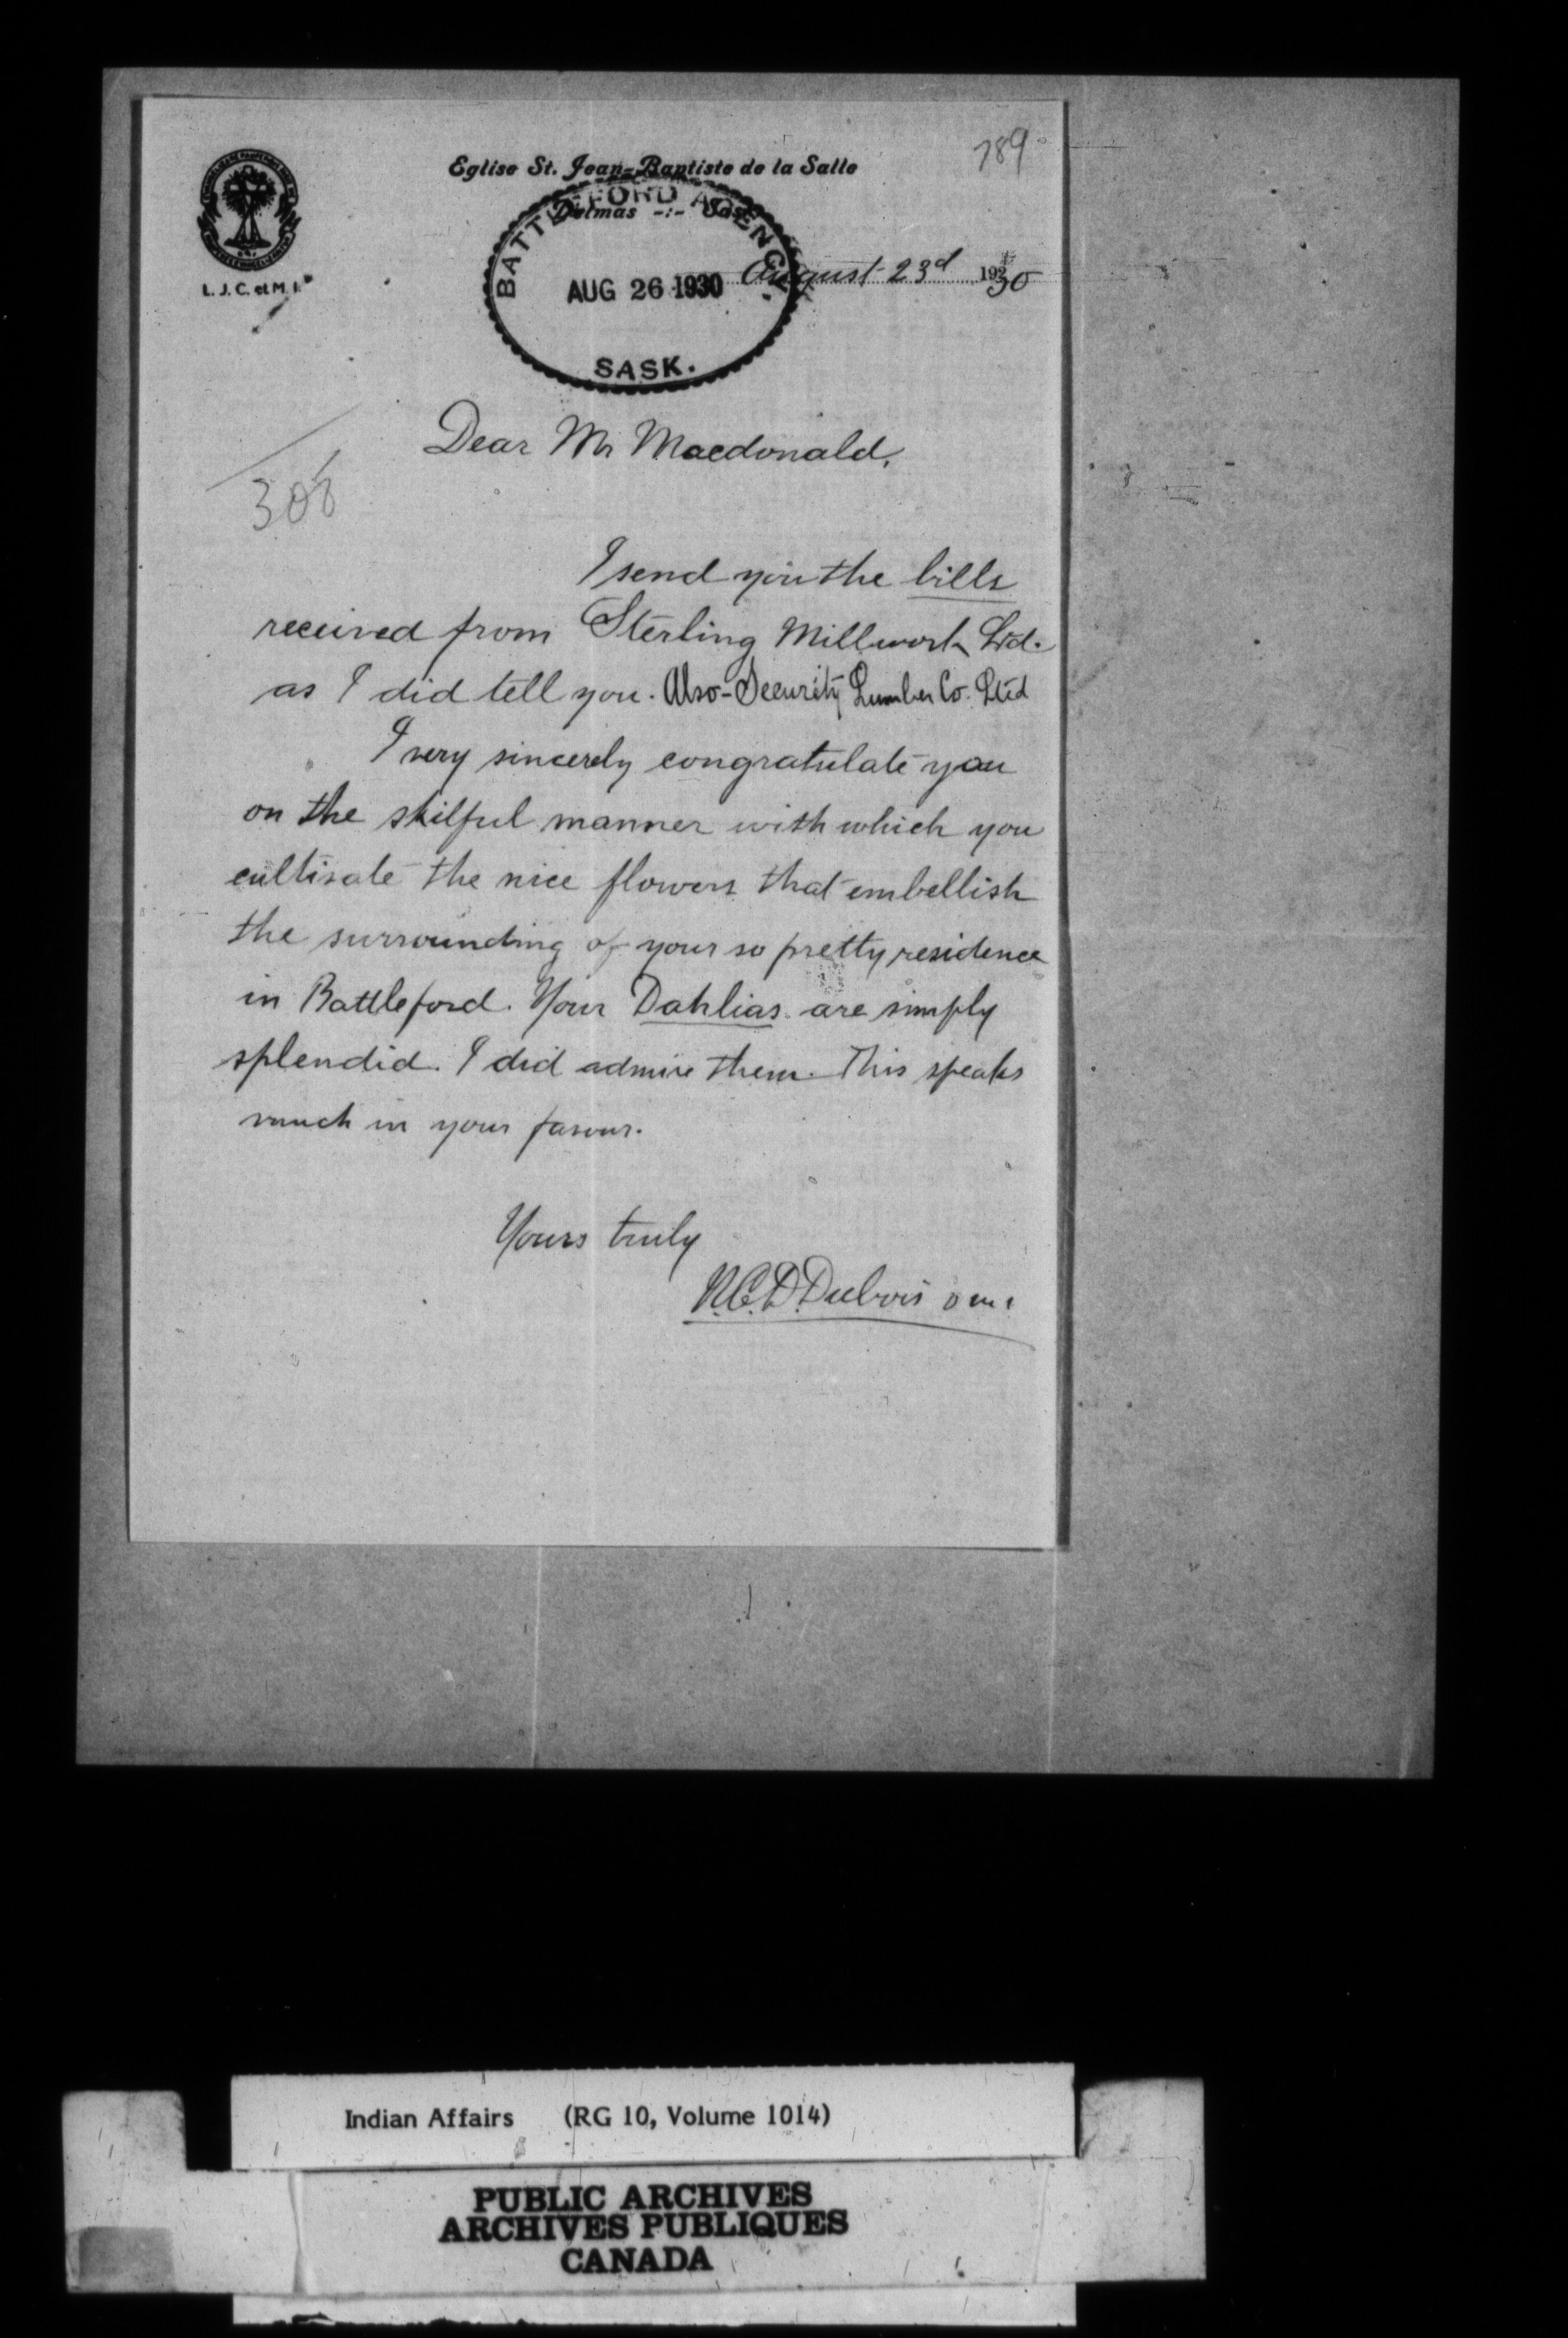 789
Eglise St. Jean-Baptiste de la Salle
Delmas -:- Sask.
L. J. C. et M. I.
BATTLEFORD AGENCY
AUG 26 1930
SASK.
August 23d 1930
Dear Mr Macdonald,
308
I send you the bills
received from Sterling Millwork Ltd.
as I did tell you. Also-Security Lumber Co. Ltd
I very sincerely congratulate you
on the skilful manner with which you
cultivate the nice flowers that embellish
the surrounding of your so pretty residence
in Battleford. Your Dahlias are simply
splendid. I did admire them. This speaks
much in your favour.
Yours truly
Dubois o m i
Indian Affairs (RG 10, Volume 1014)
PUBLIC ARCHIVES
ARCHIVES PUBLIQUES
CANADA